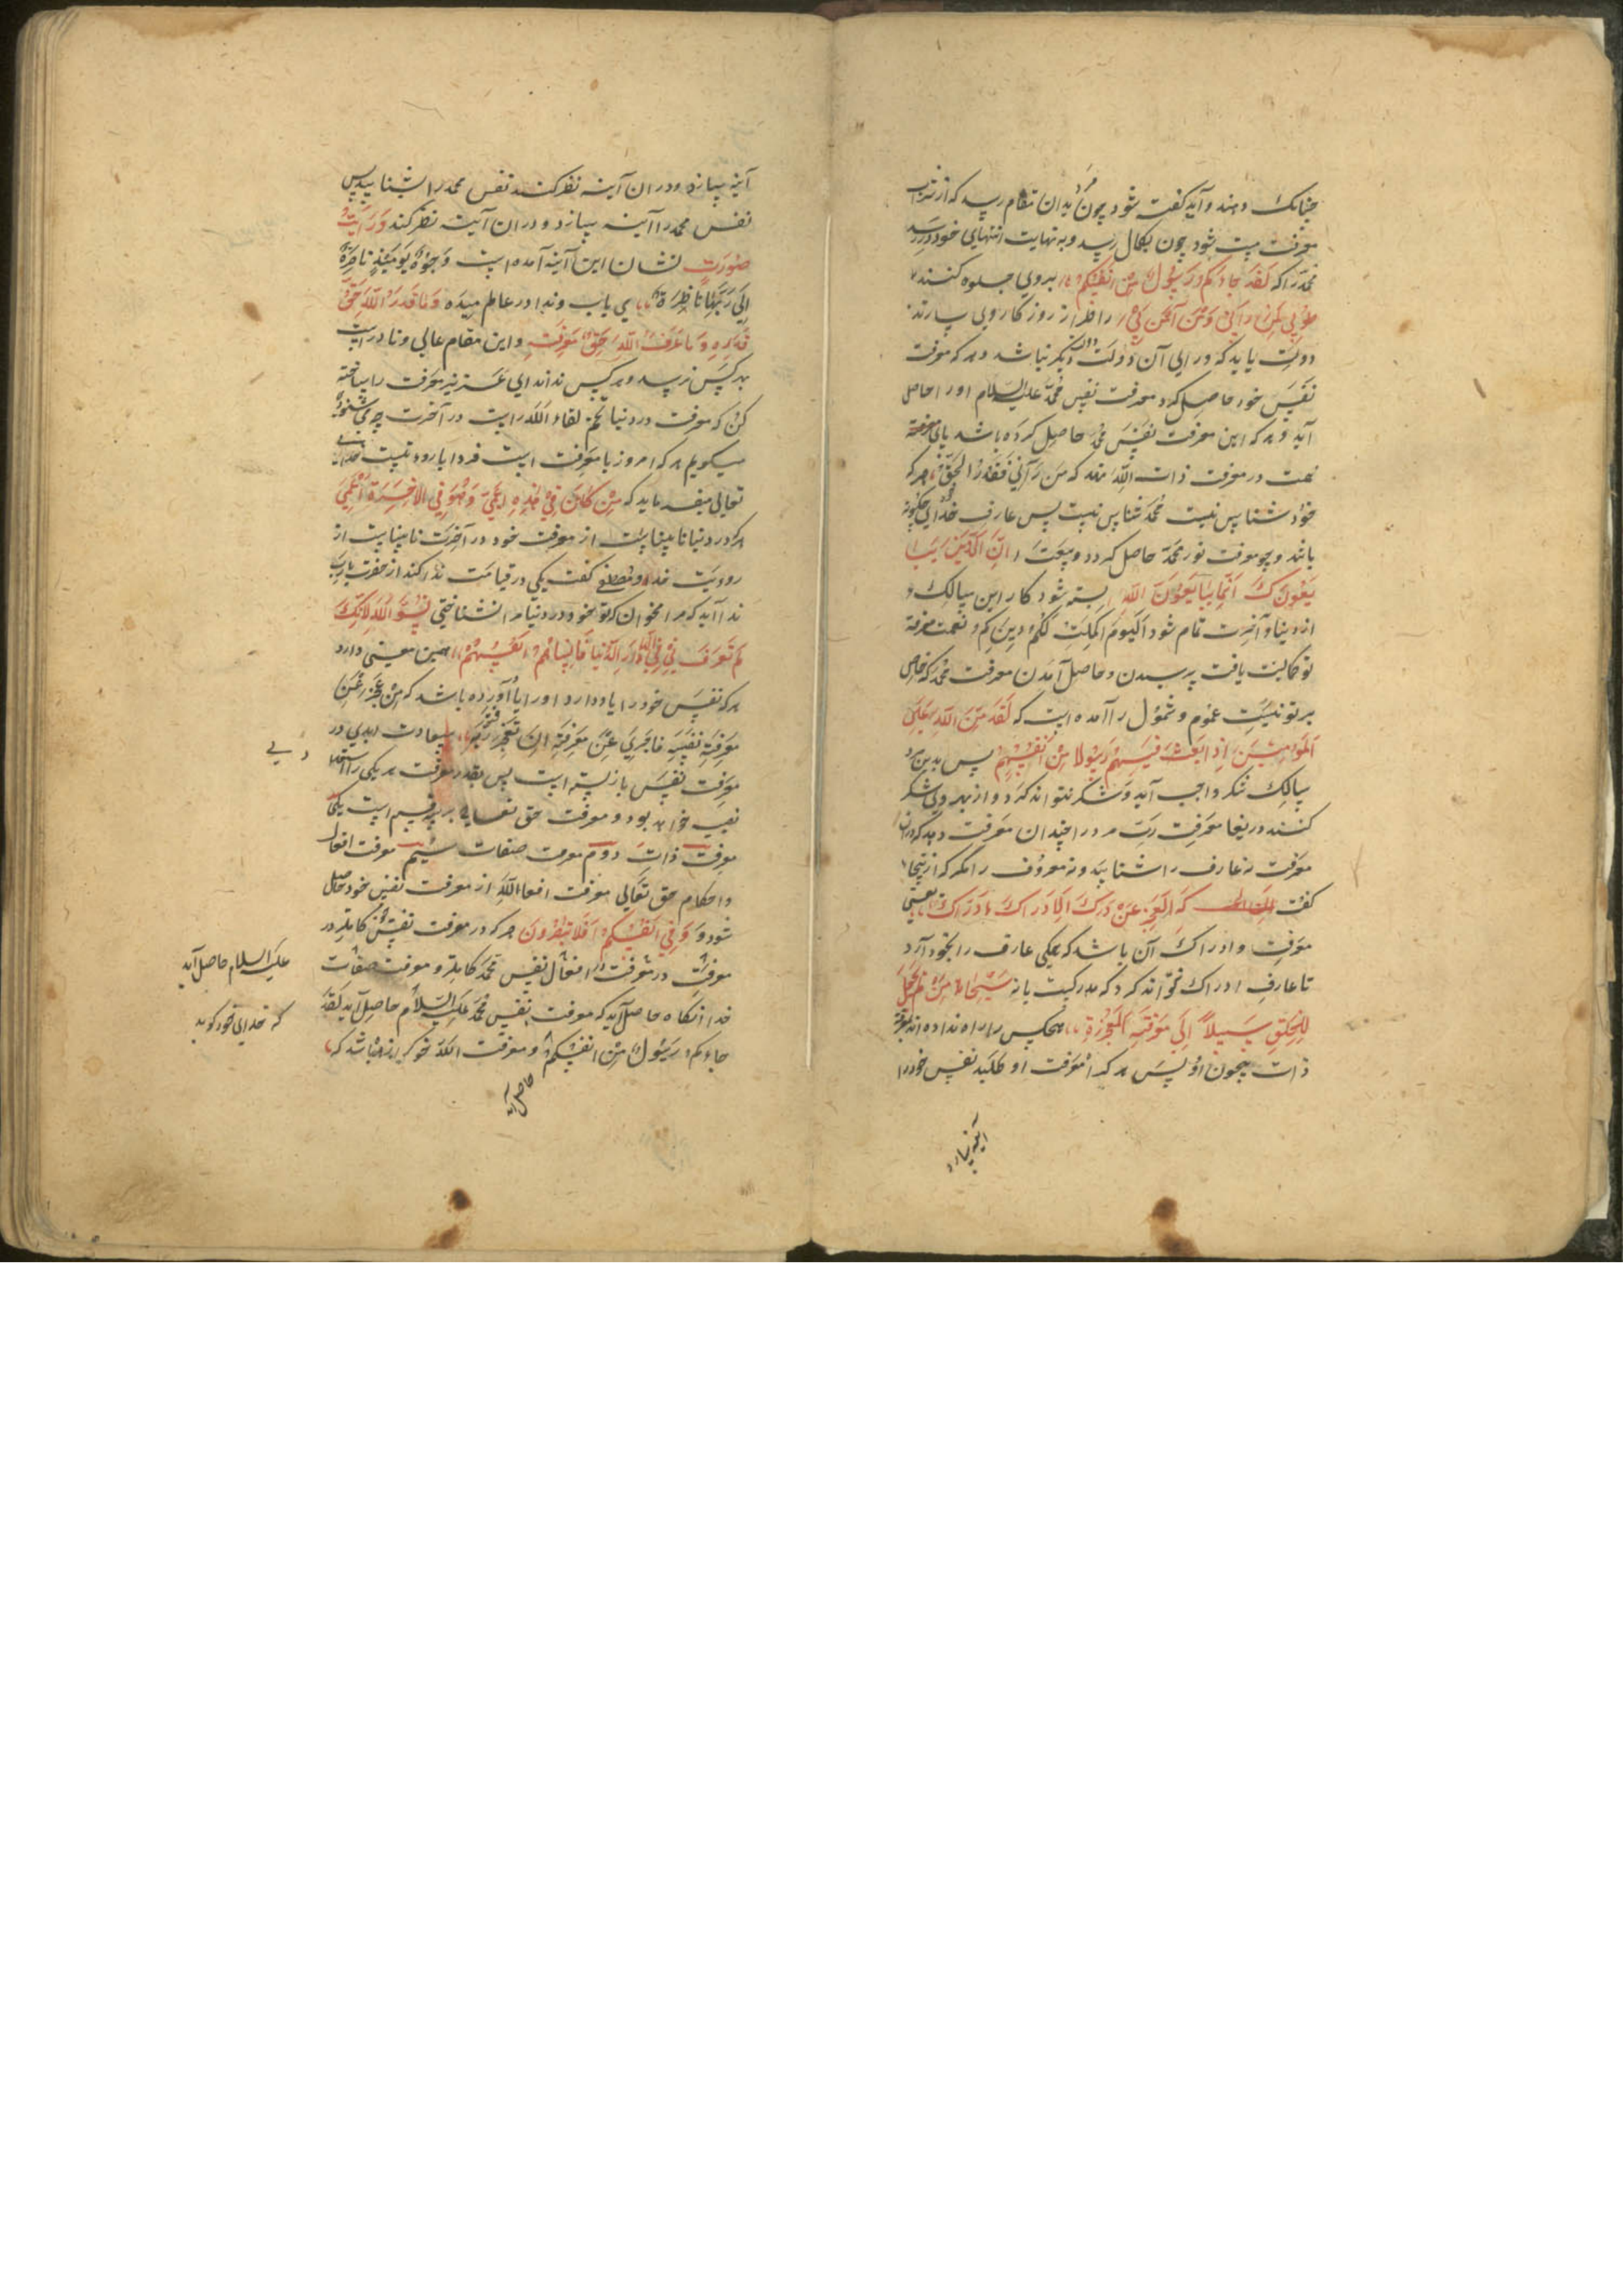 چنانک دهند و آید گفته شود چون بدان مقام رسد که از شراب
معرفت مست شود چون بکمال رسد و به نهایت انتهایی خود در رسد
محمد را که لَقَد جاءکم رسول من انفسکم بروی جلوه کنند
طوبی لمن رآنی و من آمن بی را طراز روزکار وی سازند
دولت یابد که ورای آن دولت دیکر نباشد و هر که معرفت
نفس خود حاصل کرد معرفت نفس محمد علیه السلام او را حاصل
آید و هر که این معرفت نفس محمد حاصل کرده باشد پای
همت در معرفت ذات الله نهد که من رآنی فقد رأ الحق هر که
خود شناس نیست محمد شناس نیست پس عارف خدای چکونه
باشد و چو معرفت نور محمد حاصل کردد و بیعت ان الذین یبا
یعونک انما یبایعون الله بسته شود کار این سالک و
از دنیا و آخرت تمام شود الیوم اکملت لکم دینکم و نعمت معرفة
تو کمالیت یافت پرسیدن و حاصل آمدن معرفت محمد که خاص
بر تو نیست عموم و شمول را آمده است که لقد من الله علی
المؤمنین اذ بعث فیهم رسولا من انفسهم پس بدین مرد
سالک شکر واجب آید و شکر نتواند کرد و از بهر وی شکر
کنند دریغا معرفت رب مرد را چندان معرفت دهد که دران
معرفت نه عارف را شناسد و نه معروف را مکر که از اینجا
کفت که العجز عن درک الادراک ادراک یعنی
معرفت و ادراک آن باشد که همکی عارف را بخود آرد
تا عارف ادراک نتواند کرد که مدرکیت یا نه سبحان من لم یجعل
للخلق سبیلا الی معرفته الا بالعجز هیچکس را راه نداده اند بمعرفة
ذات بیچون او پس هر که معرفت او طلبد نفس خود را
آینه سازد
آینه سازد و در ان آینه نظر کند نفس محمد را شناسد پس
نفس محمد را آینه سازد و در ان آینه نظر کند و رأیت
صورت نشان این آینه آمده است وجوه یومئذ ناضرة
الی ربها ناظرة می یاب و ندا در عالم میده و ما قدروا الله حق
قدره و ما عرفوا الله حق معرفته و این مقام عالی و نادر است
هر کس نرسد و هر کس نداند ای عزیز معرفت را ساخته
کن که معرفت در دنیا تخم لقاء الله است در آخرت چه می شنوی
میکویم هر که امروز با معرفت است فردا با رویت است خدای
تعالی میفرماید که من کان فی هذه اعمی و هو فی الاخرة اعمی
هر که در دنیا نابیناست از معرفت خود در آخرت نابیناست از
رؤیت خدا و مصطفی کفت یکی در قیامت ندا کند از حضرت یا رب
ندا آید که مرا مخوان که تو بخود در دنیا مرا نشناختی نسوا الله لانک
لم تعرف فی الدنیا فانساهم انفسهم همین معنی دارد
هر که نفس خود را یاد دارد او را یاد آورده باشد که من عجز عن
معرفة نفسه فاحری عن معرفة ان تعجز ربه سعادت ابدی در
معرفت نفس باز بسته است پس بقدر معرفت هر یکی را استعد
نصیب خواهد بود و معرفت حق تعالی بر سه قسم است یکی
معرفت ذات دوم معرفت صفات سیم معرفت افعال
و احکام حق تعالی معرفت افعال الله از معرفت نفس خود حاصل
شود و و فی انفسکم افلا تبصرون هر که در معرفت نفس کاملتر در
معرفت افعال نفس محمد کاملتر و معرفت صفات
خدا انکاه حاصل آید که معرفت نفس محمد علیه السلام حاصل آید لقد
جاءکم رسول من انفسکم و معرفت الله
علیه السلام حاصل آید
که خدای خود کوید
حاصل آید